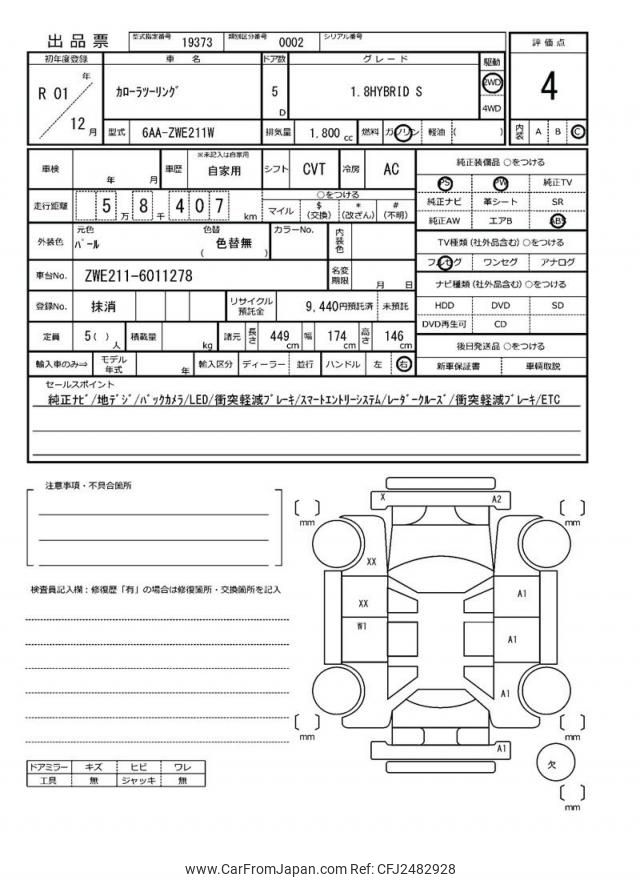 出品票 型式指定番号 19373 類別区分番号 0002 シリアル番号
評価点
4
内装 A B C
初年度登録 車名 ドア数 グレード 駆動
R 01 年 12 月
カローラツーリング 5 D 1.8HYBRID S 2WD 4WD
型式 6AA-ZWE211W 排気量 1.800 cc 燃料 ガソリン 軽油 ( )
車検 年 月 車歴 ※未記入は自家用 自家用 シフト CVT 冷房 AC
走行距離 5 万 8 千 4 0 7 km
○をつける
マイル $ (交換) * (改ざん) # (不明)
外装色 元色 パール 色替 ( 色替無 ) カラーNo. 内装色
車台No. ZWE211-6011278 名変期限 月 日
登録No. 抹消 リサイクル預託金 9,440円預託済 未預託
定員 5( ) 人 積載量 kg 諸元 長さ 449 cm 幅 174 cm 高さ 146 cm
輸入車のみ⇒ モデル年式 年 輸入区分 ディーラー 並行 ハンドル 左 右
純正装備品 ○をつける
PS PW 純正TV
純正ナビ 革シート SR
純正AW エアB ABS
TV種類 (社外品含む) ○をつける
フルセグ ワンセグ アナログ
ナビ種類 (社外品含む) ○をつける
HDD DVD SD
DVD再生可 CD
後日発送品 ○をつける
新車保証書 車輌取説
セールスポイント
純正ナビ/地デジ/バックカメラ/LED/衝突軽減ブレーキ/スマートエントリーシステム/レーダークルーズ/衝突軽減ブレーキ/ETC
注意事項・不具合箇所
検査員記入欄：修復歴「有」の場合は修復箇所・交換箇所を記入
ドアミラー キズ ヒビ ワレ
工具 無 ジャッキ 無
X A2
mm mm
XX
XX A1
W1 A1
A1
mm mm
A1
欠
mm
www.CarFromJapan.com Ref: CFJ2482928